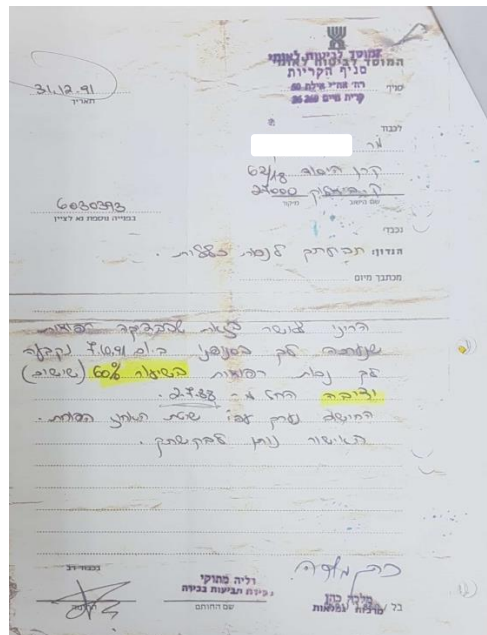 המוסד לביטוח לאומי
המוסד לביטוח לאומי
סניף הקריות
סניף
רח' אח"י אילת 50
קרית חיים 26260
31.12.91
תאריך
לכבוד
מר
קרן היסוד 62/18
ק. ביאליק 27000
שם הישוב מיקוד
6030393
בפנייה נוספת נא לציין
נכבדי
הנדון: תביעתך לנכות כללית.
מכתבך מיום
הריני לאשר בזאת שבבדיקה רפואית
שנערכה לך בסניפנו ביום 7.10.91 נקבעה
לך נכות רפואית בשיעור 60% (שישים)
יציבה החל מ- 2.7.88.
החישוב נערך עפ"י שיטת האחוז הפוחת.
האישור ניתן לבקשתך.
בכבוד רב
דליה מתוקי
פקידת תביעות בכירה
החתימה
שם החותם
כהן מלכה
מלכה כהן
מרכזת גמלאות
בל